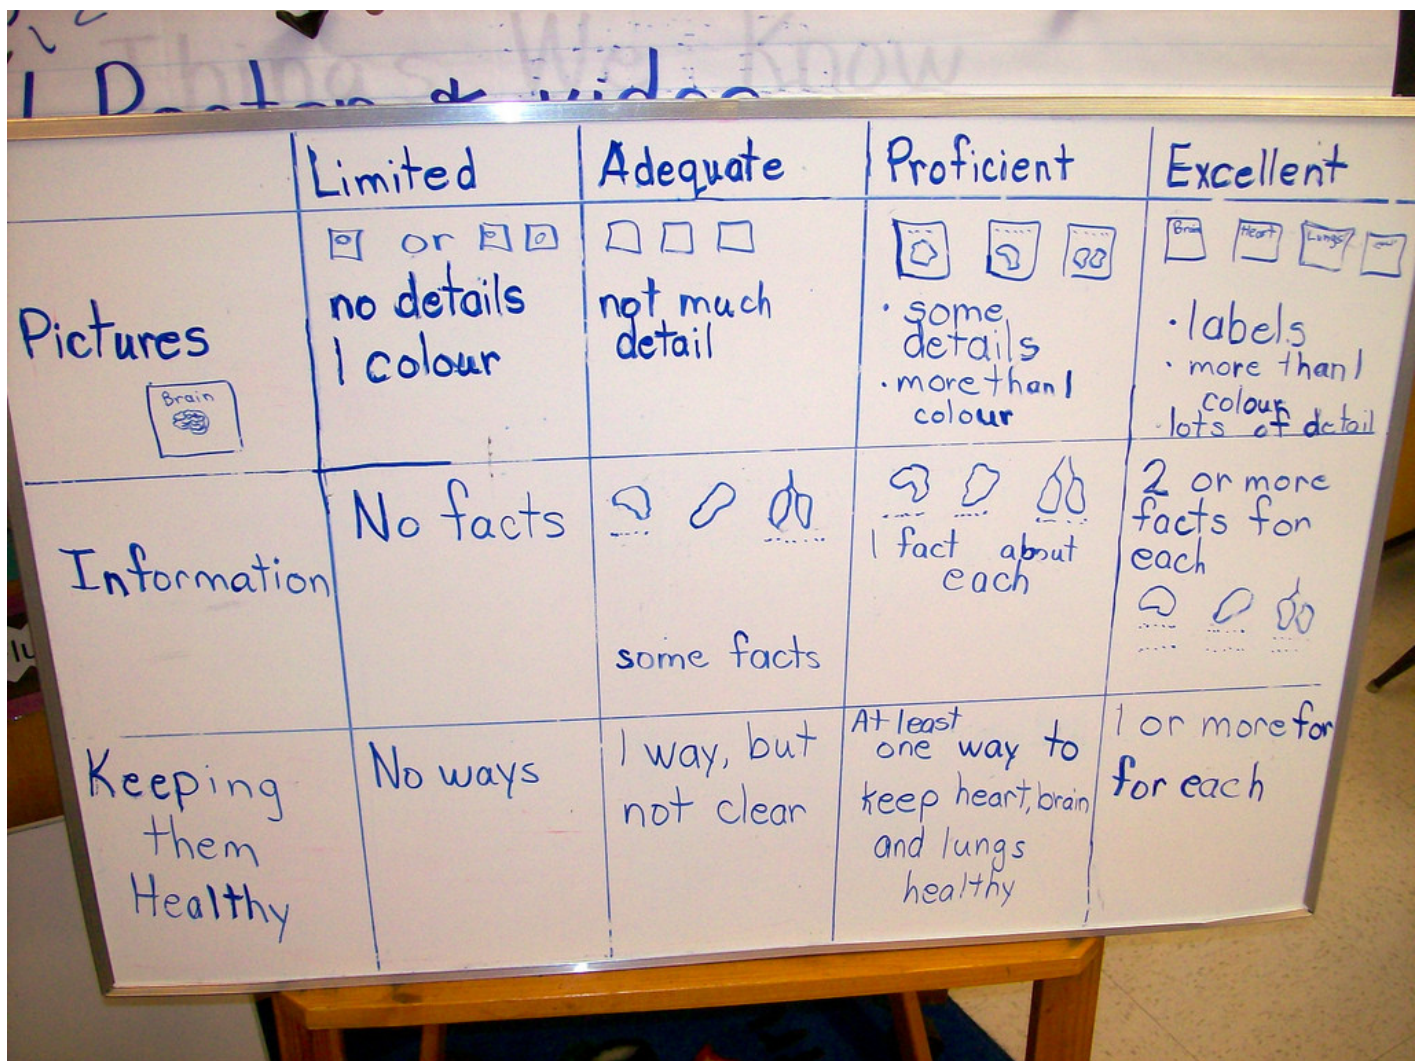 Things We Know
Limited
Adequate
Proficient
Excellent
Pictures
Brain
or
no details
1 colour
not much
detail
• some
details
• more than 1
colour
Brain
Heart
Lungs
• labels
• more than 1
colour
lots of detail
Information
No facts
some facts
1 fact about
each
2 or more
facts for
each
Keeping
them
Healthy
No ways
1 way, but
not clear
At least
one way to
keep heart, brain
and lungs
healthy
1 or more for
for each